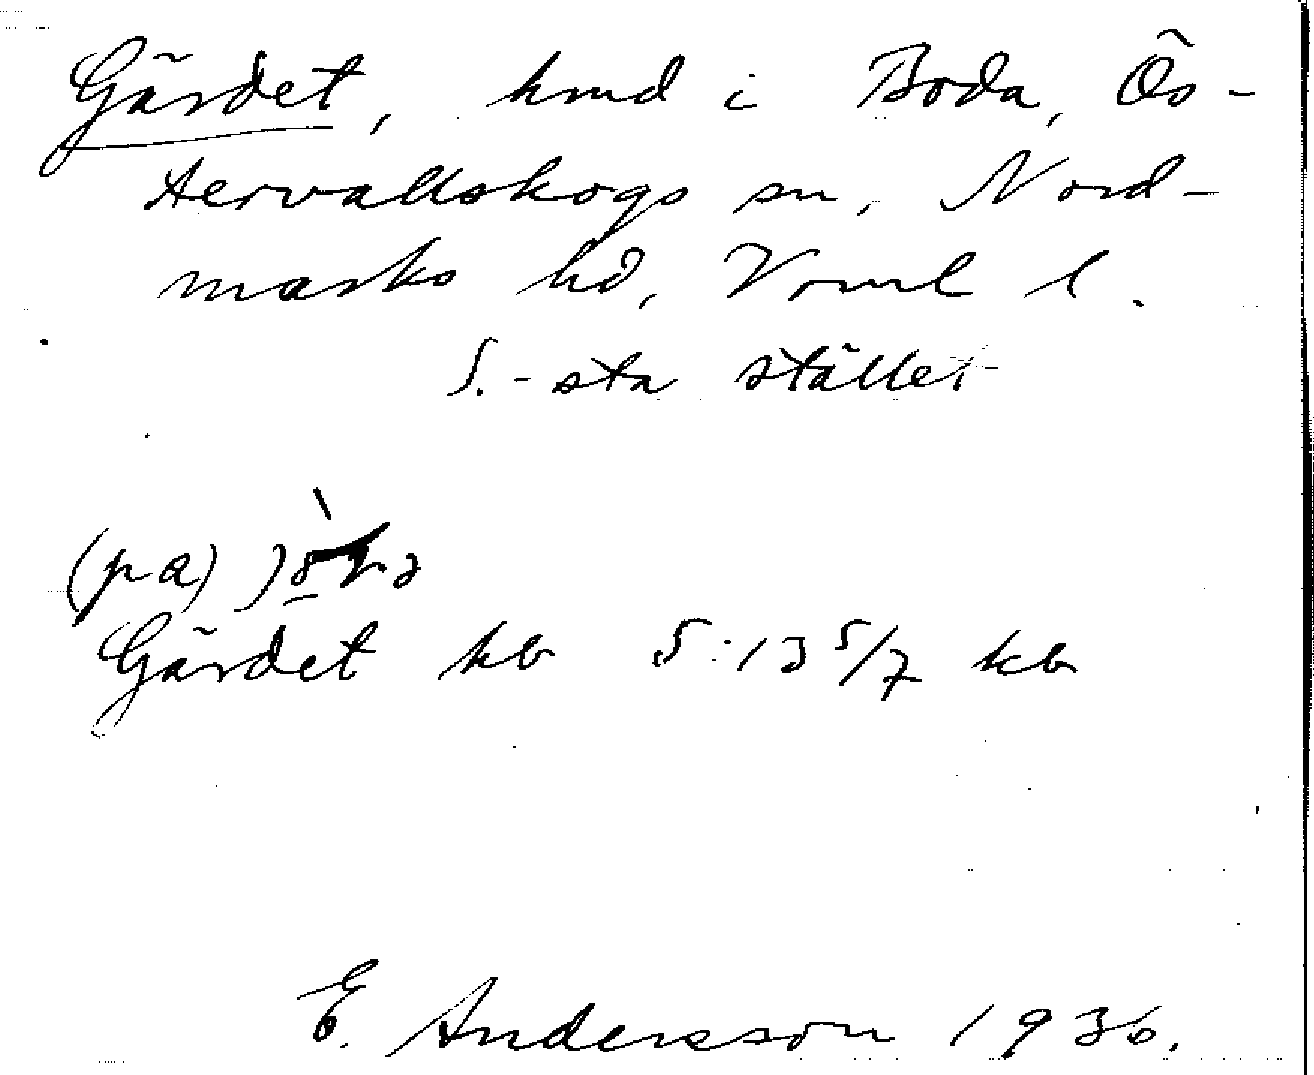 Gärdet, hmd i Boda, Ös-
tervallskogs sn, Nord-
marks hd, Vrml l.
S.-sta stället
(på)
Gärdet kb 5:13 5/7 kb
E. Andersson 1936.